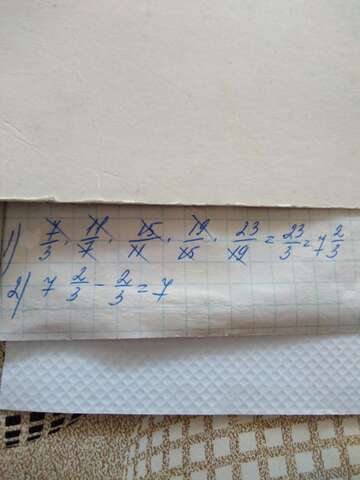 1) 7/3 · 11/7 · 15/11 · 19/15 · 23/19 = 23/3 = 7 2/3
2) 7 2/3 - 2/3 = 7